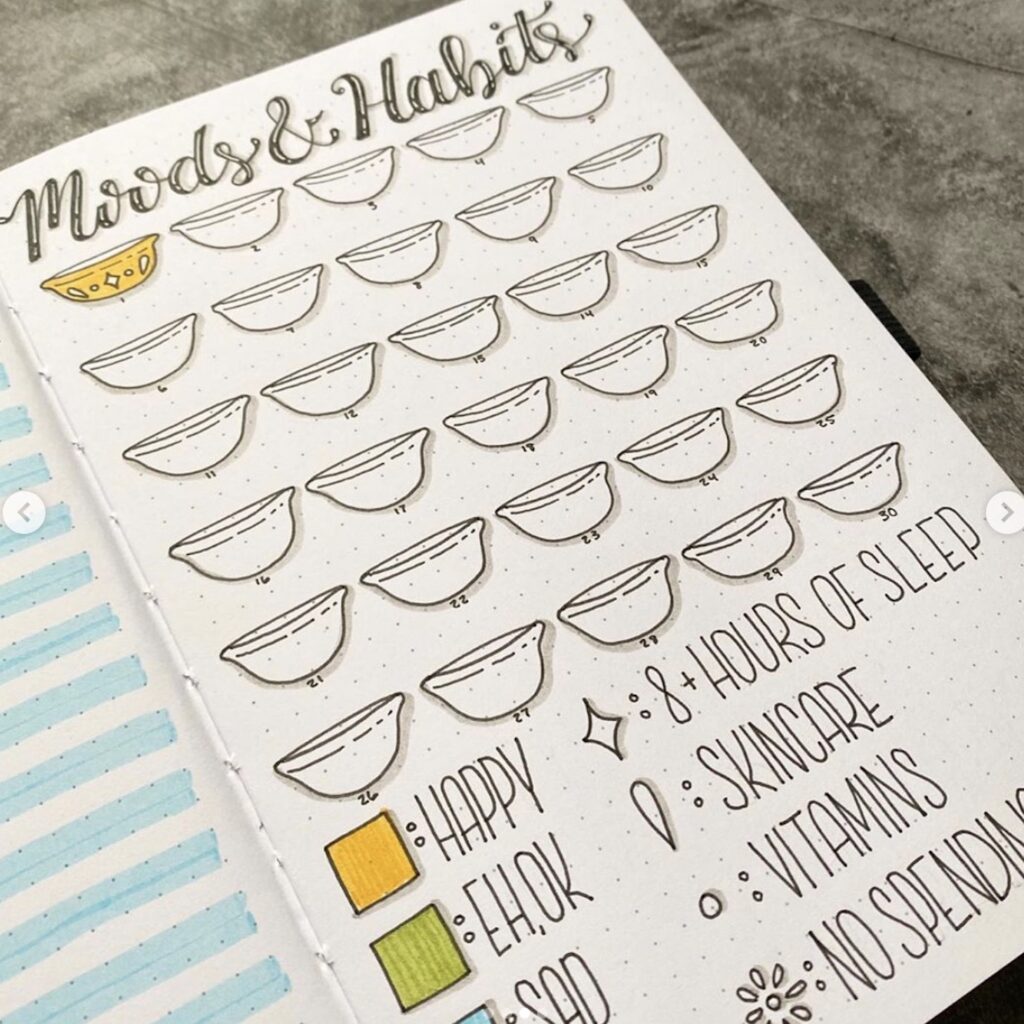 Moods & Habits
1 2 3 4 5
6 7 8 9 10
11 12 13 14 15
16 17 18 19 20
21 22 23 24 25
26 27 28 29 30
: HAPPY
: EH, OK
: SAD
: 8+ HOURS OF SLEEP
: SKINCARE
: VITAMINS
: NO SPENDING